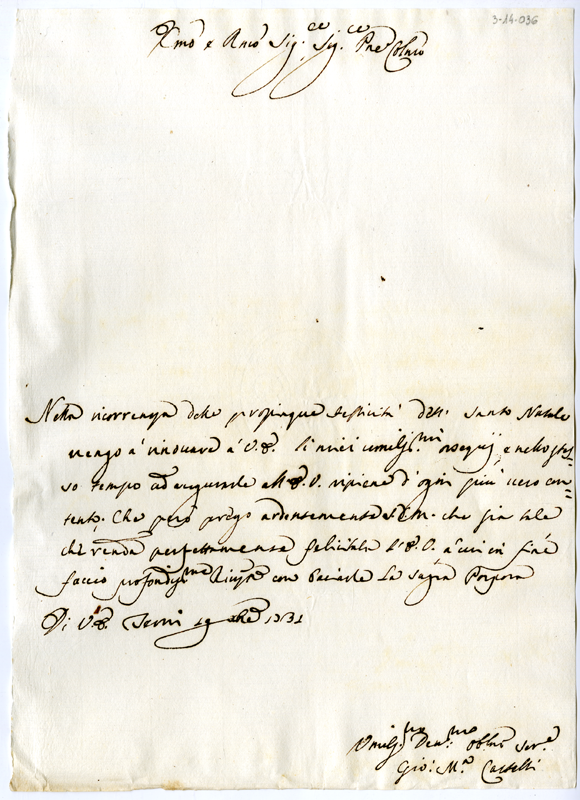 3-14-036
Emō e Rmō Sig.re Sig.re Pne Colmō
Nella ricorrenza delle propinque festività del Santo Natale
vengo à rinovare à V.E. li miei umiliss.mi ossequij e nello stes=
so tempo ad augurarle all'E.V. ripiene d'ogni più vero con=
tento. Che però prego ardentemente S.D.M. che sia tale
che renda perfettamente felicitata l'E.V. à cui in fine
faccio profondiss.ma con baciarle La Sagra Porpora
Di V.E. Terni 19 1731
Umiliss.mo Deu.mo Obblmō Ser.e
Gio: M.a Castelli